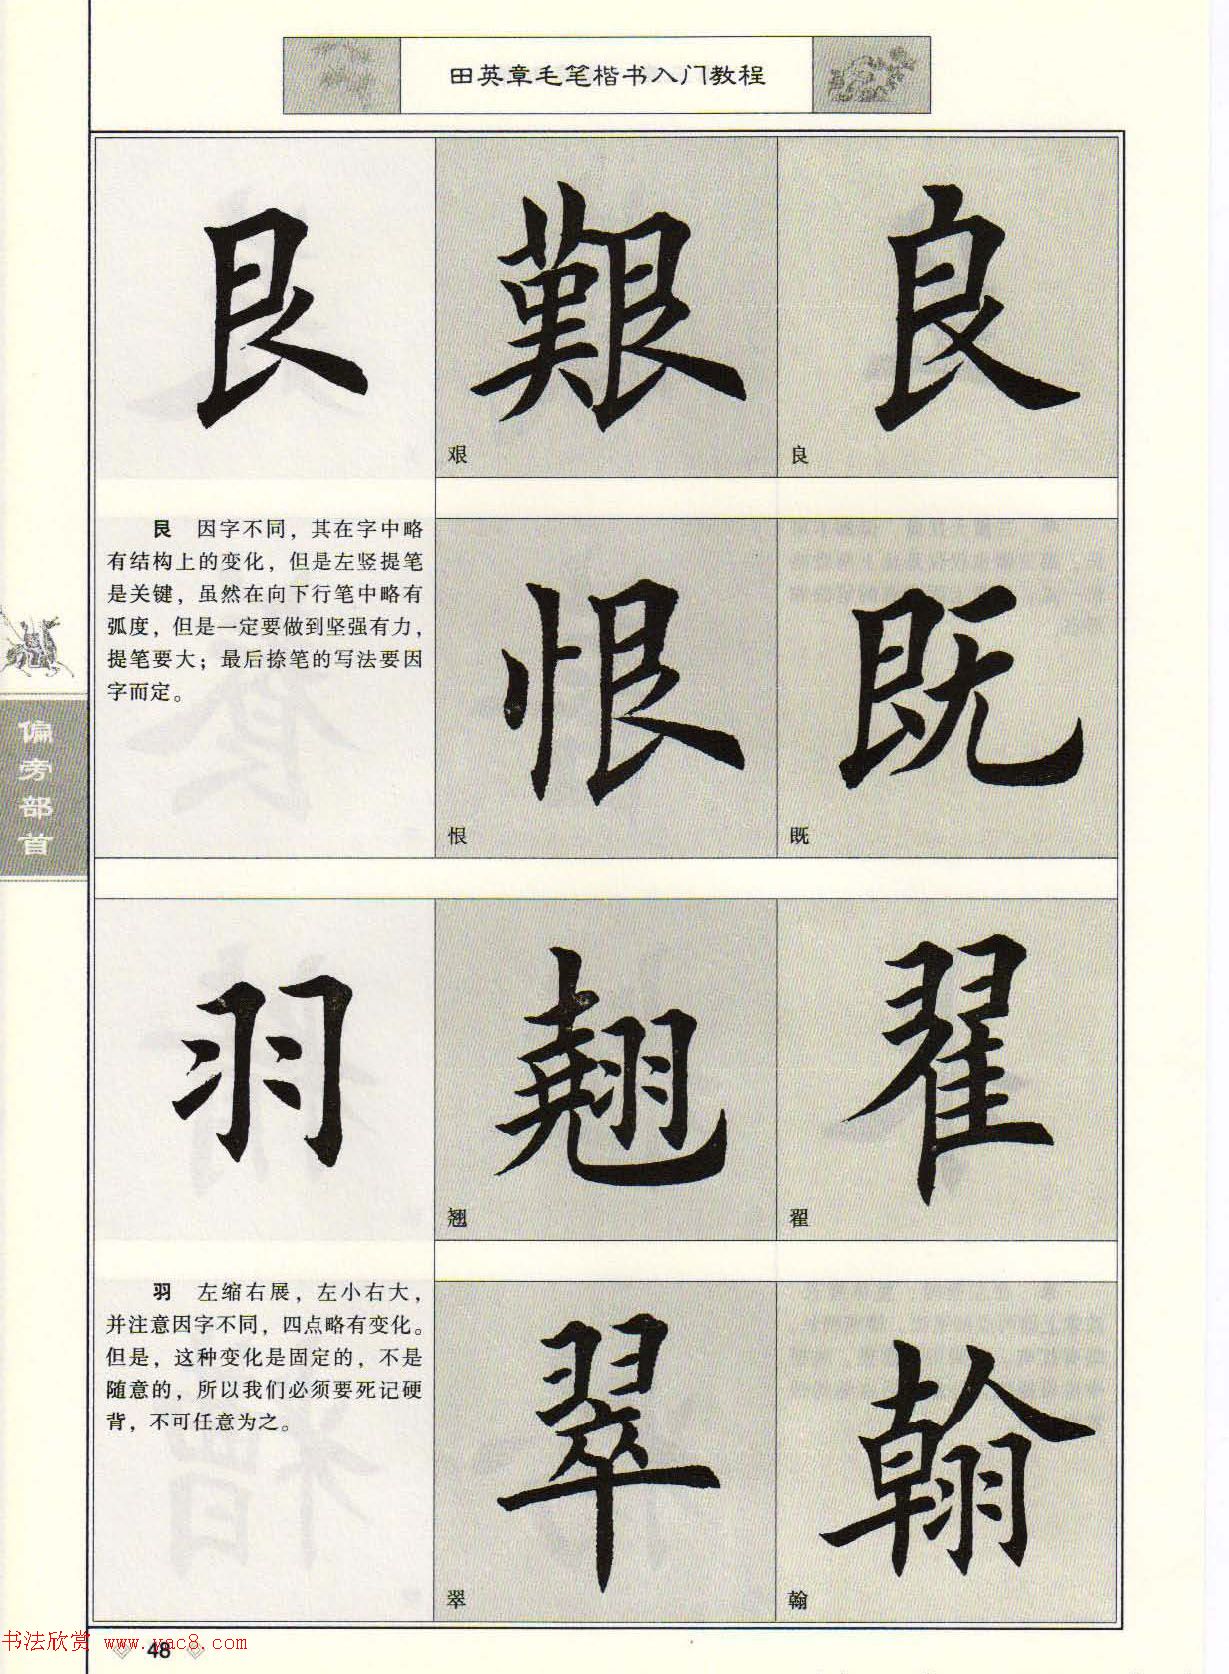 田英章毛笔楷书入门教程
艮 艱 良
艰 良
艮 因字不同，其在字中略
有结构上的变化，但是左竖提笔
是关键，虽然在向下行笔中略有
弧度，但是一定要做到坚强有力，
提笔要大；最后捺笔的写法要因
字而定。
恨 既
恨 既
偏旁部首
羽 翘 翟
翘 翟
羽 左缩右展，左小右大，
并注意因字不同，四点略有变化。
但是，这种变化是固定的，不是
随意的，所以我们必须要死记硬
背，不可任意为之。
翠 翰
翠 翰
书法欣赏 www.yac8.com
48